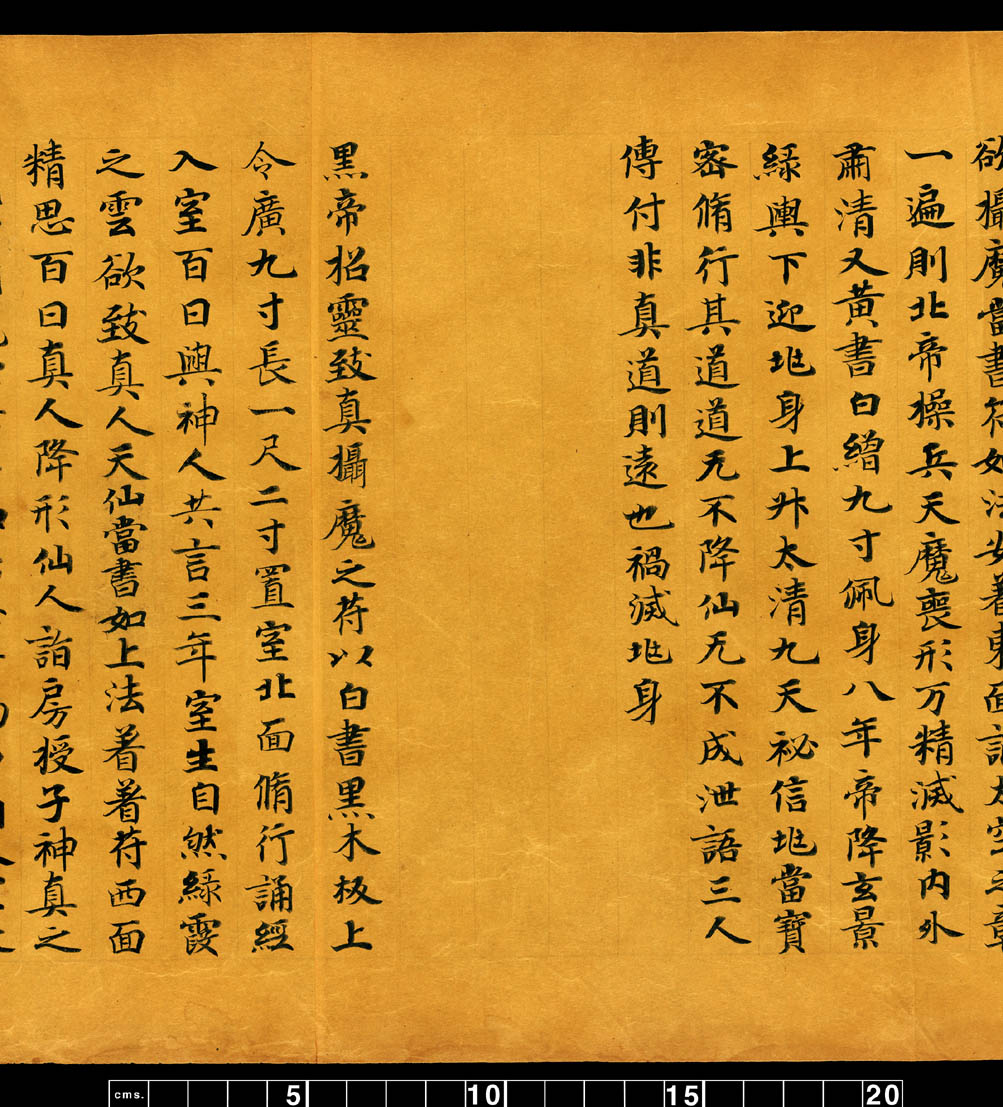 欲攝魔當書符如法安著東面誦太空二章
一遍則北帝操兵天魔喪形万精滅影內外
肅清又黃書白繒九寸佩身八年帝降玄景
綠輿下迎兆身上升太清九天祕信兆當寶
密脩行其道道无不降仙无不成泄語三人
傳付非真道則遠也禍滅兆身
黑帝招靈致真攝魔之苻以白書黑木板上
令廣九寸長一尺二寸置室北面脩行誦經
入室百日與神人共言三年室生自然綠霞
之雲欲致真人天仙當書如上法着着苻西面
精思百日真人降形仙人詣房授子神真之
cms. 5 10 15 20